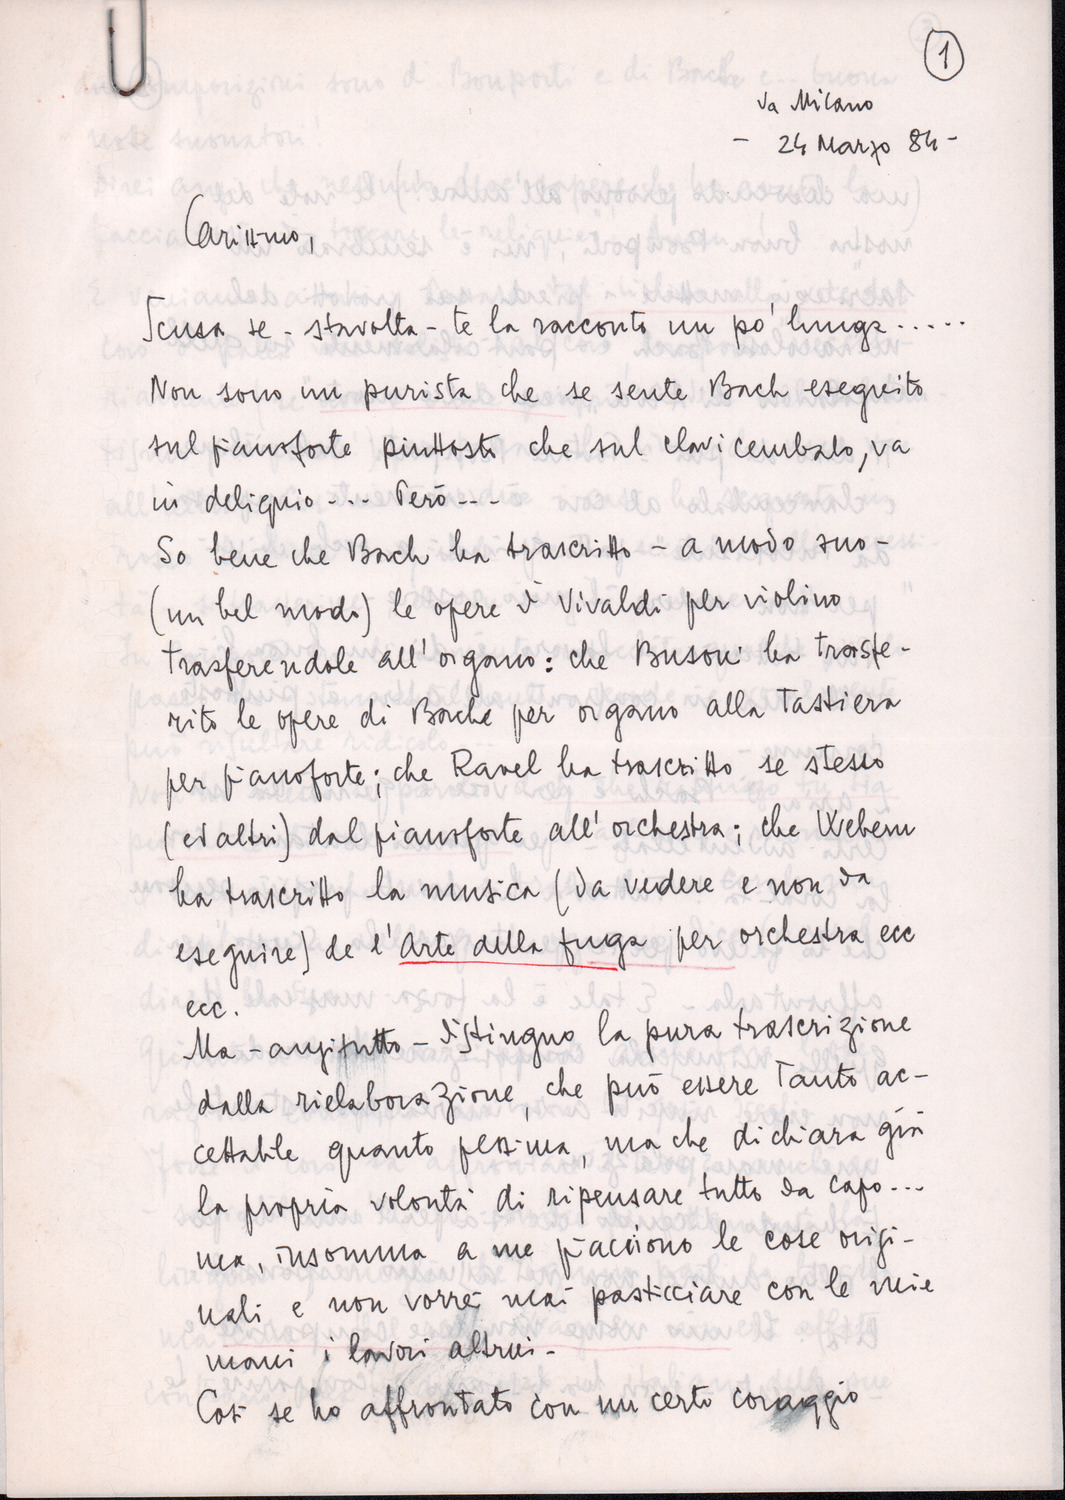 1
da Milano
- 24 Marzo 84 -
Carissimo,
Scusa se - stavolta - te la racconto un po' lunga.....
Non sono un purista che se sente Bach eseguito
sul pianoforte piuttosto che sul clavicembalo, va
in deliquio --- Però ---
So bene che Bach ha trascritto - a modo suo -
(un bel modo) le opere di Vivaldi per violino
trasferendole all'organo: che Busoni ha trasfe-
rito le opere di Bach per organo alla tastiera
per pianoforte; che Ravel ha trascritto se stesso
(ed altri) dal pianoforte all'orchestra; che Webern
ha trascritto la musica (da vedere e non da
eseguire) de l'Arte della fuga per orchestra ecc
ecc.
Ma - anzitutto - distinguo la pura trascrizione
dalla rielaborazione, che può essere tanto ac-
cettabile quanto pessima, ma che dichiara già
la propria volontà di ripensare tutto da capo...
ma, insomma a me piacciono le cose origi-
nali e non vorrei mai pasticciare con le mie
mani i lavori altrui -
Così se ho affrontato con un certo coraggio